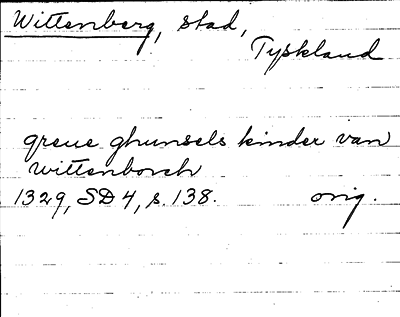 Wittenberg, stad,
Tyskland
greue ghunsels kinder van
wittenborch
1329, SD 4, s. 138. orig.